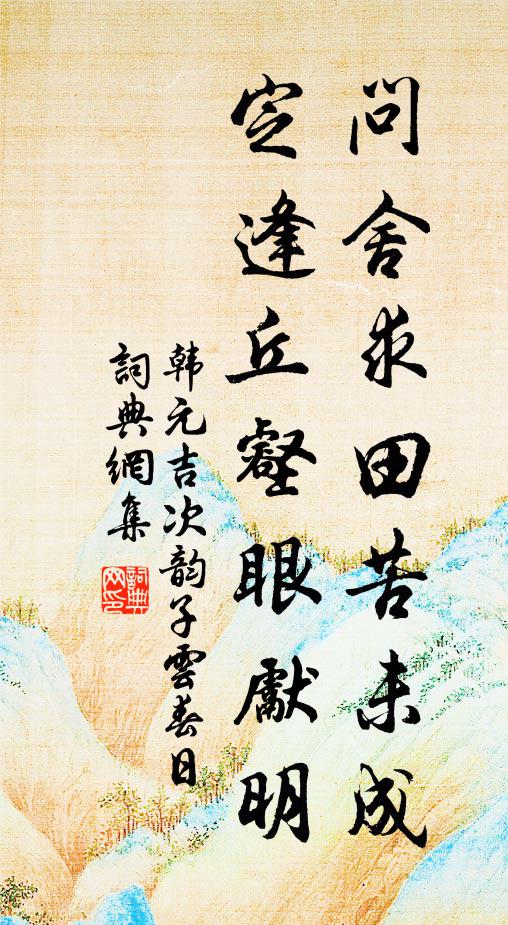 問舍求田苦未成
定逢丘壑眼獻明
韩元吉次韵子雲春日
詞典網集
詞典網印